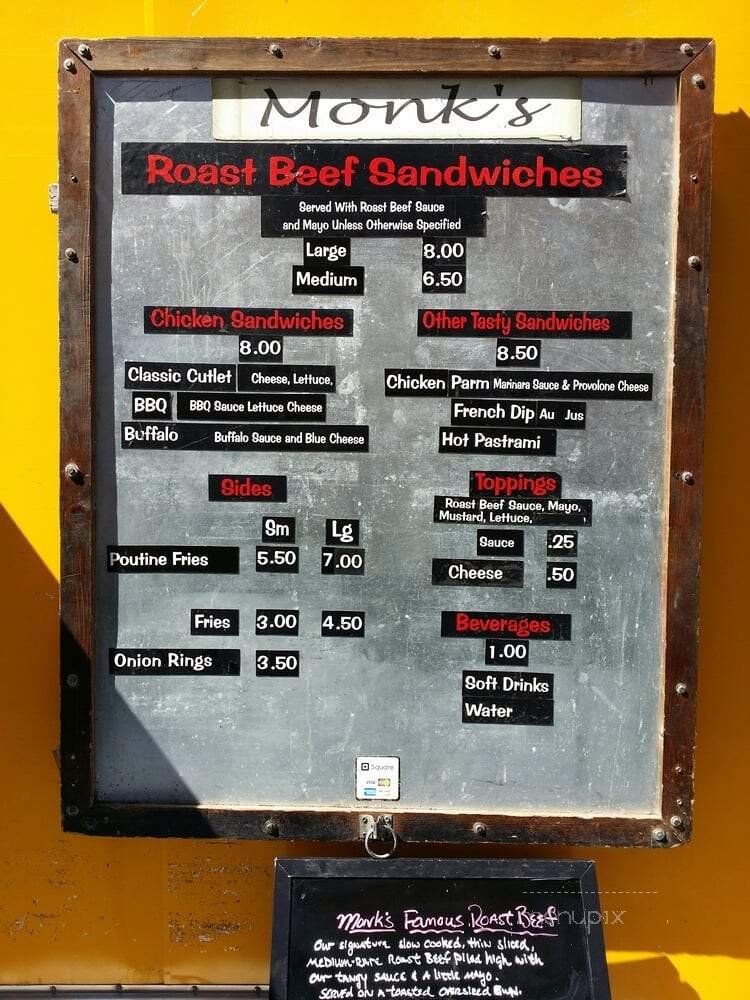 Monk's
Roast Beef Sandwiches
Served With Roast Beef Sauce
and Mayo Unless Otherwise Specified
Large 8.00
Medium 6.50
Chicken Sandwiches
8.00
Classic Cutlet Cheese, Lettuce,
BBQ BBQ Sauce Lettuce Cheese
Buffalo Buffalo Sauce and Blue Cheese
Other Tasty Sandwiches
8.50
Chicken Parm Marinara Sauce & Provolone Cheese
French Dip Au Jus
Hot Pastrami
Sides
Sm Lg
Poutine Fries 5.50 7.00
Fries 3.00 4.50
Onion Rings 3.50
Toppings
Roast Beef Sauce, Mayo,
Mustard, Lettuce,
Sauce .25
Cheese .50
Beverages
1.00
Soft Drinks
Water
Square
VISA
Monk's Famous Roast Beef
Our signature slow cooked, thin sliced,
medium-rare Roast Beef piled high with
our tangy sauce & a little mayo.
Served on a toasted oversized bun.